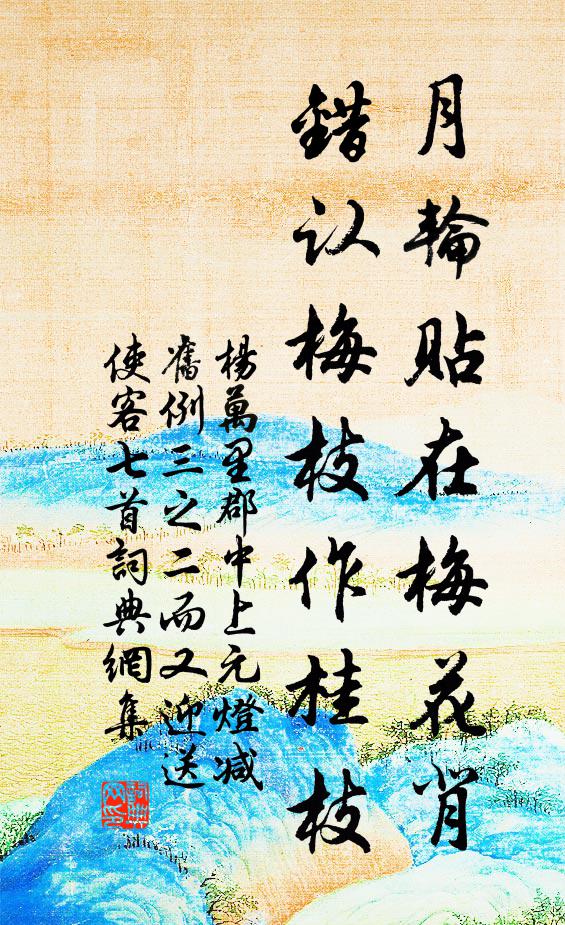 月輪貼在梅花背
錯认梅枝作桂枝
楊萬里郡中上元燈减
舊例三之二而又迎送
使客七首詞典網集